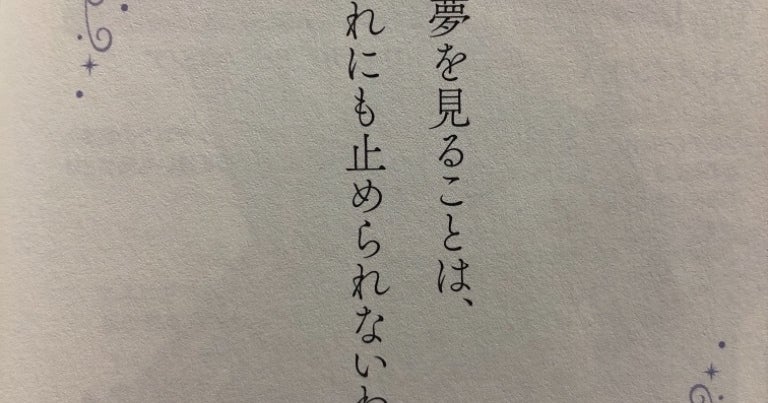 夢を見ることは、
れにも止められないわ